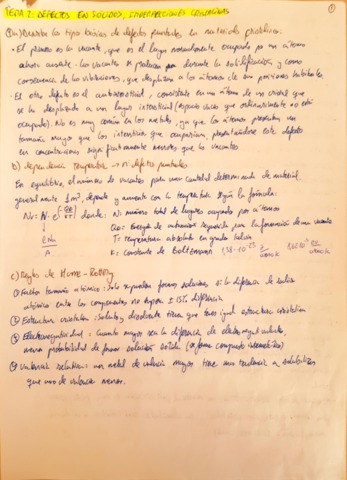 TEMA 2: DEFECTOS EN SÓLIDOS, IMPERFECCIONES
1
a) Describa los tipos básicos de defectos puntuales en materiales
• El primero es la vacante, que es el lugar normalmente ocupado por un átomo
ahora ausente. Las vacantes se producen durante la solidificación, y como
consecuencia de las vibraciones, que desplazan a los átomos de sus posiciones habituales.
• El otro defecto es el autointersticial, consistente en un átomo de un cristal que
se ha desplazado a un lugar intersticial (espacio vacío que ordinariamente no está
ocupado). No es muy común en los metales, ya que los átomos presentan un
tamaño mayor que los intersticios que ocuparían, presentándose este defecto
en concentraciones significativamente menores que la vacantes
b) dependencia temperatura → nº defectos puntuales
En equilibrio, el número de vacantes para una cantidad determinada de material,
generalmente 1m³, depende y aumenta con la temperatura según la fórmula:
donde: N: número total de lugares ocupado por átomos
Qv = Energía de activación requerida para la formación de una vacante
T = Temperatura absoluta en grados kelvin
K = Constante de Boltzmann 1,38·10⁻²³
c) Reglas de Hume-Rothery
① Factor tamaño atómico: solo se pueden formar soluciones, si la diferencia de radios
atómicos entre los componentes no supera ± 15% diferencia
② Estructura cristalina: soluto y disolvente tienen que tener igual estructura cristalina
③ Electronegatividad: cuanto mayor sea la diferencia de electronegatividades,
menor probabilidad de formar solución sólida (se forma compuesto intermetálico)
④ Valencias relativas: un metal de valencia mayor tiene una tendencia a solubilizarse
que uno de valencia menor.